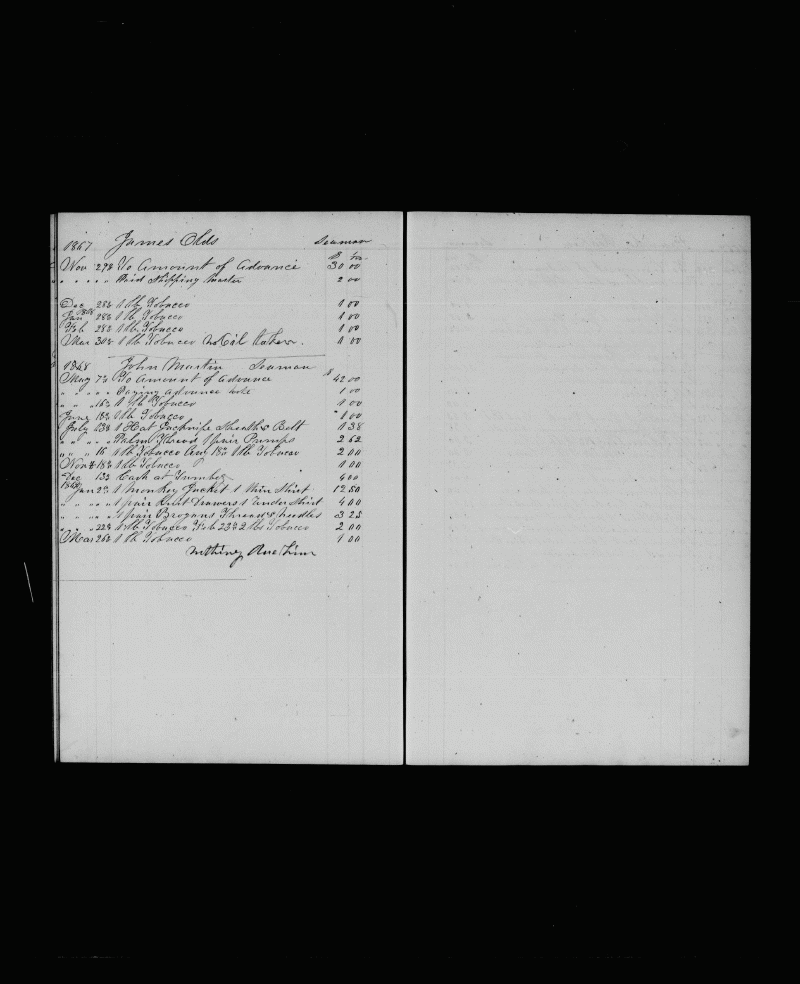 1867 James Olds Seaman
$ cts
Nov 29th To Amount of Advance 30 00
" " " " " Paid Shipping Master 2 00
Dec 28th 1 lb Tobacco 1 00
1868
Jan 28th 1 lb Tobacco 1 00
Feb 28th 1 lb Tobacco 1 00
Mar 30th 1 lb Tobacco no Oil taken. 1 00
1868 John Martin Seaman
May 7th To Amount of Advance $ 42 00
" " " " " advance note 1 00
" " " 16th 1 lb Tobacco 1 00
June 18th 1 lb Tobacco " 1 00
July 13th 1 Hat Jackknife Sheath & Belt 1 38
" " " " Palm Thread 1 pair Pumps 2 62
" " " 16 1 lb Tobacco Aug 18th 1 lb Tobacco 2 00
Nov 18th 1 lb Tobacco 1 00
Dec 13th Cash at Tumbez 4 00
Jan 2nd 1 Monkey Jacket 1 Shirt 12 50
" " " " " 1 pair Knit Drawers 1 Under Shirt 4 00
" " " " 1 pair Brogans Thread & Needles 3 25
" " " 22th 1 lb Tobacco Feb 23th 2 lbs Tobacco 2 00
Mar 26th 1 lb Tobacco 1 00
nothing Due him